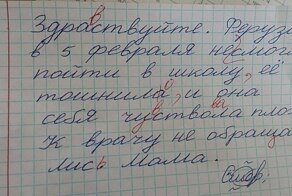 Здраствуйте. Феруза
в 5 февраля несмогла
пойти в школу, её
тошнила, и она
себя чуствола пло
К врачу не обраща
лись мама.